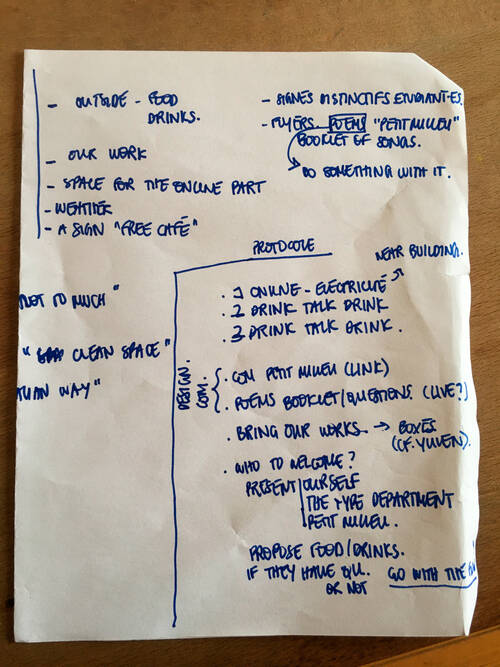 - OUTSIDE - FOOD
DRINKS.
- OUR WORK
- SPACE FOR THE ONLINE PART
- WEATHER
- A SIGN "FREE CAFÉ"
- SIGNES DISTINCTIFS ETUDIANT·ES.
- FLYERS... POEMS "PETIT MILIEU"
BOOKLET OF SONGS.
DO SOMETHING WITH IT.
NOT TO MUCH"
" CLEAN SPACE"
WAY"
PROTOCOLE
NEAR BUILDING.
. 1 ONLINE - ELECTRICITÉ
. 2 DRINK TALK DRINK
. 3 DRINK TALK DRINK.
DESIGN.
COM.
. COM PETIT MILIEU (LINK)
. POEMS BOOKLET/QUESTIONS. (LIVE?)
. BRING OUR WORKS. → BOXES
(CF. YUVEN).
. WHO TO WELCOME?
PRESENT OURSELF
THE TYPE DEPARTMENT
PETIT MILIEU.
PROPOSE FOOD/DRINKS.
IF THEY HAVE QU.
OR NOT
GO WITH THE